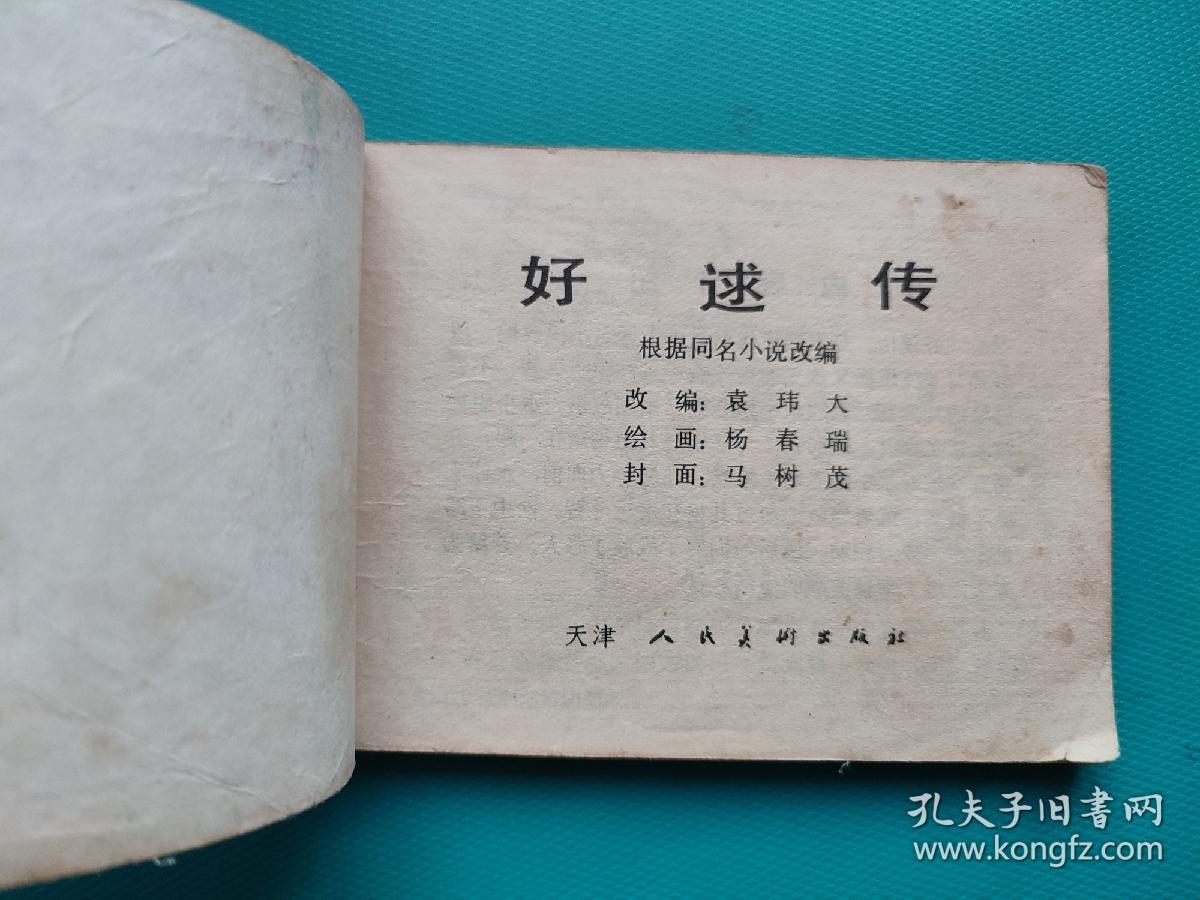 好 逑 传
根据同名小说改编
改 编：袁 玮 大
绘 画：杨 春 瑞
封 面：马 树 茂
天津 人民美术出版社
孔夫子旧书网
www.kongfz.com